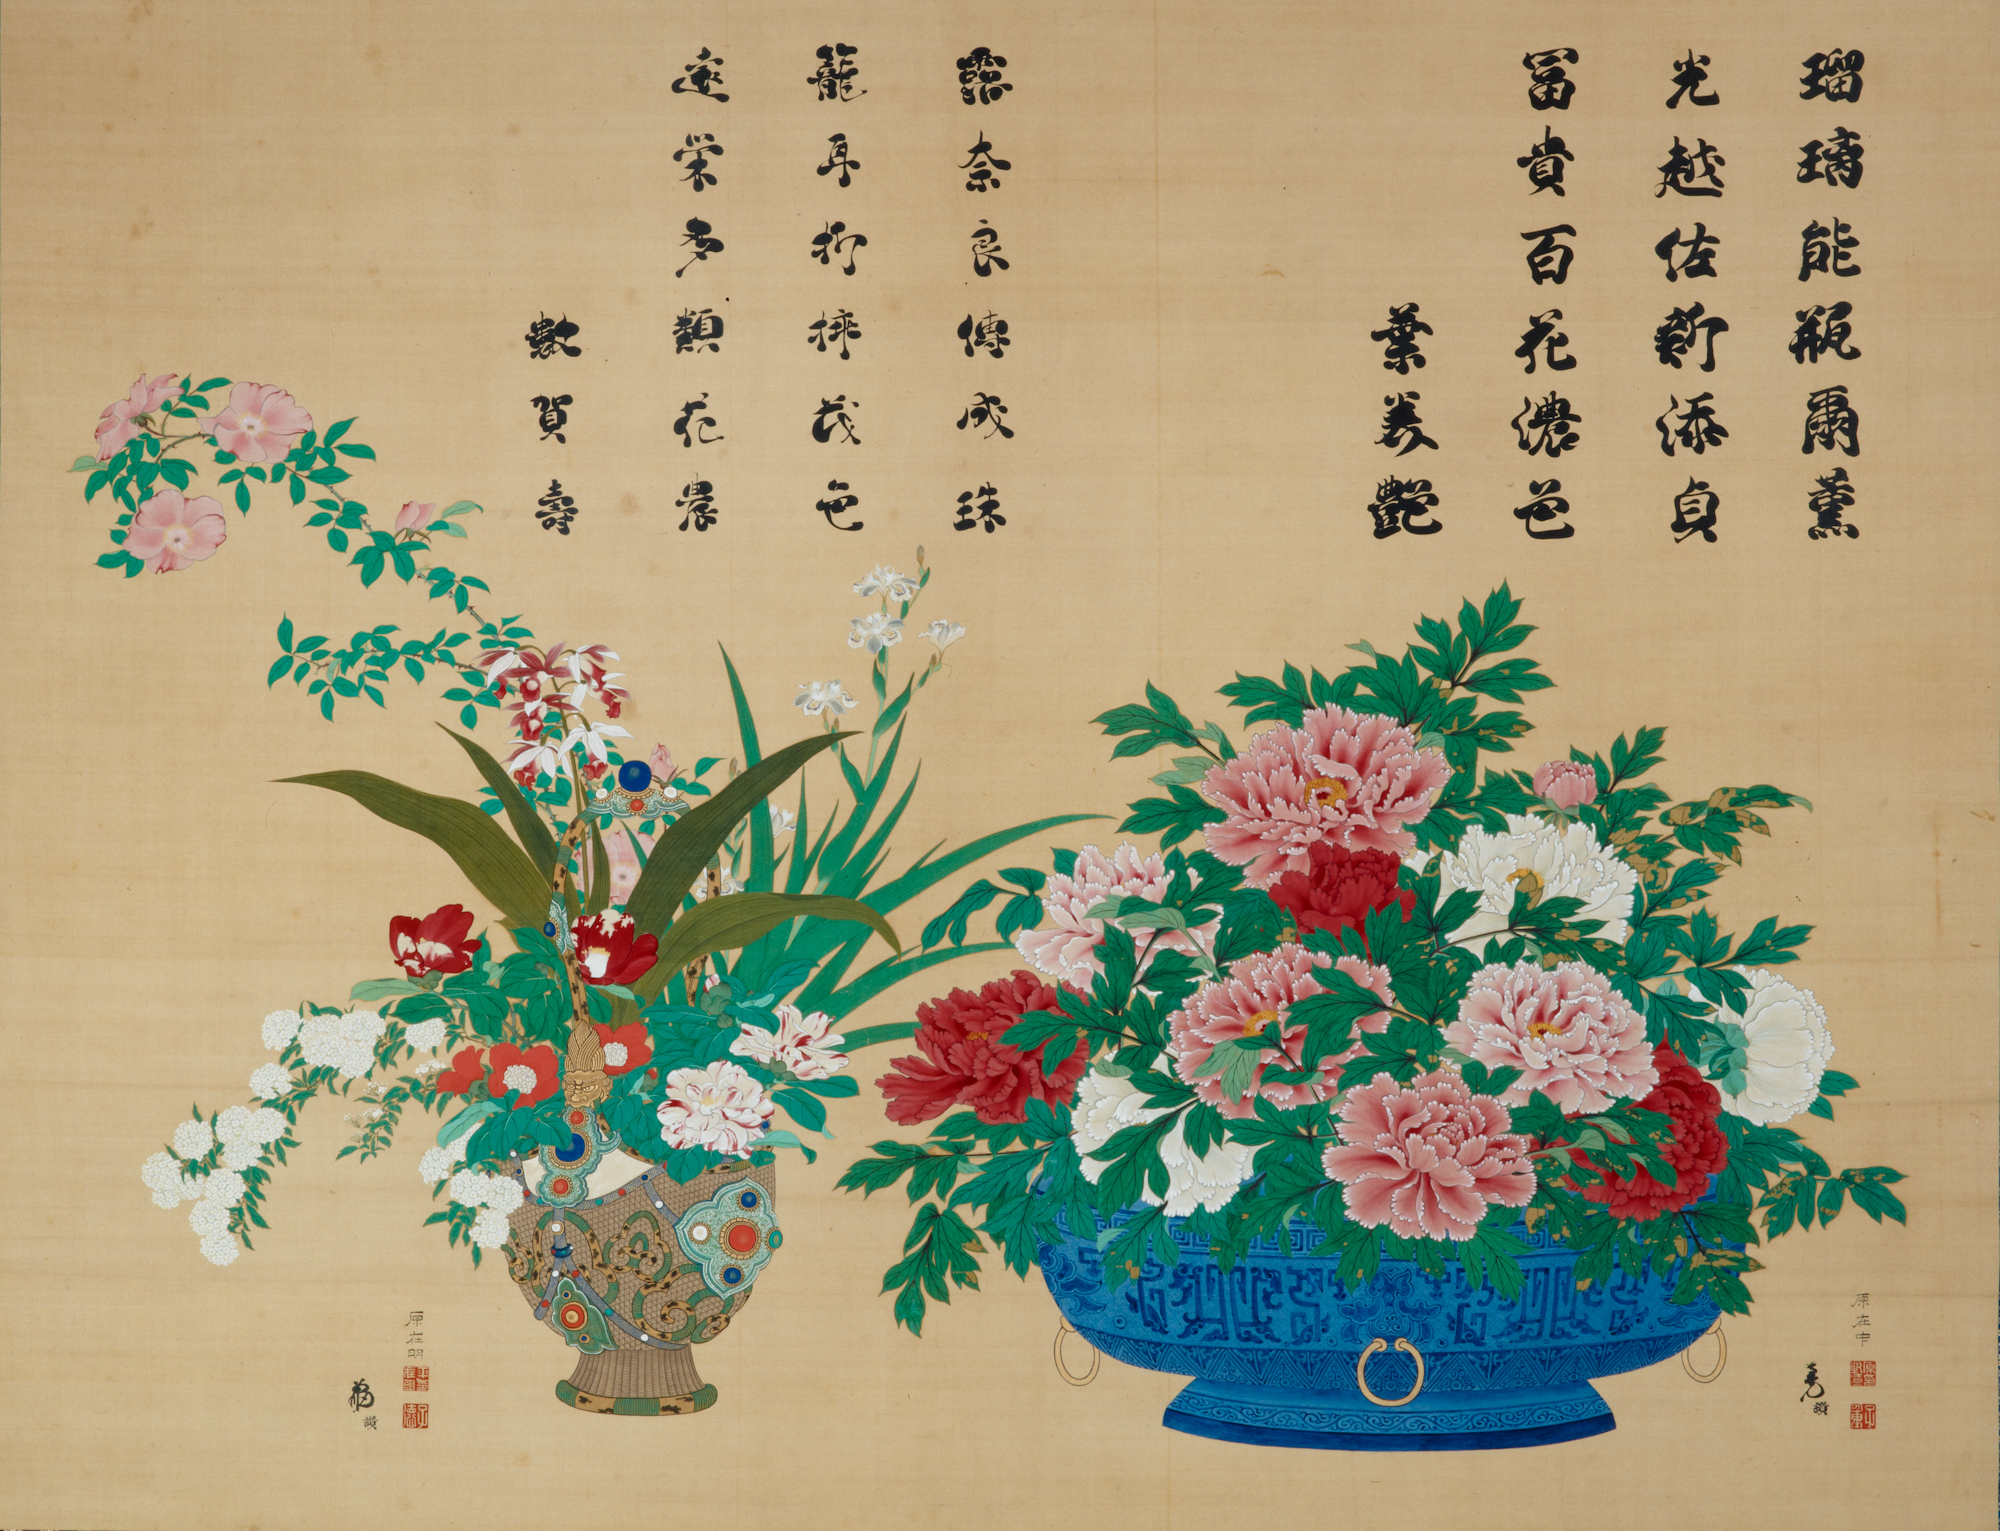 瑠璃能瓶爾薫
光越佐新添貞
冨貴百花濃芭
葉美艶
露奈良傳成珠
籠耳折挿茂色
遠栄多類花農
數賀壽
原在中
原在明